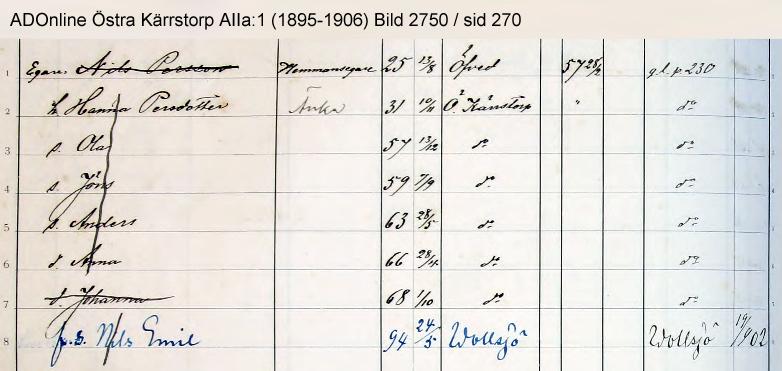 ADOnline Östra Kärrstorp AIIa:1 (1895-1906) Bild 2750 / sid 270
1 Egare Nils Persson Hemmansegare 25 13/8 Öfved 57 28/2 gl. p. 230
2 h. Hanna Persdotter Änka 31 10/11 Ö. Kärrstorp " do
3 s. Ola 57 13/12 do do
4 s. Jöns 59 7/9 do do
5 s. Anders 63 28/5 do do
6 d. Anna 66 28/11 do do
7 d. Johanna 68 1/10 do do
8 f.s. Nils Emil 94 24/5 Vollsjö Vollsjö 19/ 902